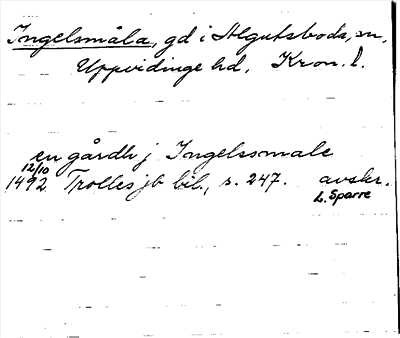 Ingelsmåla, gd i Algutsboda, sn,
Uppvidinge hd. Kron. l.
en gårdh j Ingelssmale
12/10
1492 Trolles jb bil., s. 247. avskr.
L. Sparre